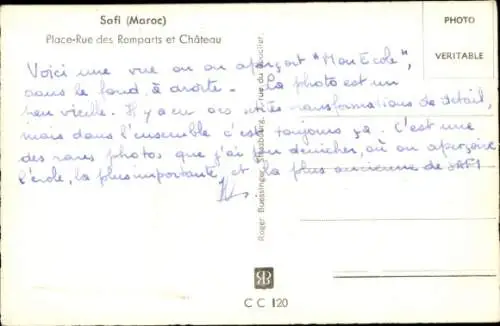 Safi (Maroc)
Place-Rue des Remparts et Château
PHOTO
VERITABLE
Voici une vue où on aperçoit "Mon Ecole",
dans le fond, à droite - La photo est un
peu vieille. Il y a eu des transformations de détail,
mais dans l'ensemble c'est toujours ça. C'est une
des rares photos que j'ai pu dénicher, où on aperçoive
l'école, la plus importante, et la plus ancienne de SAFI
Roger Buessinger, Strasbourg, rue du Bouclier
RB
C C 120